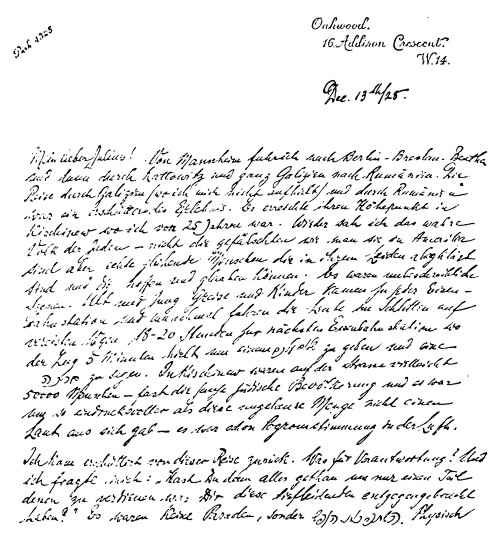 Oakwood.
16. Addison Crescent.
W.14.
Dec. 13th/25.
Mein lieber Julius! Von Mannheim fuhr ich nach Berlin - Breslau - Beuthen
und dann durch Kattowitz und ganz Galizien nach Rumänien. Die
Reise durch Galizien (wo ich mich nicht aufhielt) und durch Rumänien
war ein Erlebnis. Es erreichte ihren Höhepunkt in
Kischinew wo ich vor 25 Jahren war. Wieder sah ich das wahre
Volk der Juden - nicht die wie man sie in Amerika
sind aber Menschen die in ihrem Leiden
sind und die hoffen und glauben können. Es waren unbeschreibliche
Szenen. Alt und jung Greise und Kinder kamen zu jeder Eisen-
bahnstation und fuhren die Leute im Schlitten auf
18-20 Stunden zur nächsten Eisenbahnstation wo
der Zug 5 Minuten hielt um einem zu geben und eine
zu sagen. In Kischinew waren auf der Strasse vielleicht
50000 Menschen - fast die ganze jüdische Bevölkerung und es war
um so eindrucksvoller als diese ungeheure Menge nicht einen
Laut aus sich gab - es war eine Pogromstimmung in der Luft.
Ich kam erschüttert von dieser Reise zurück. Was für Verantwortung! Und
ich fragte mich: "Hast Du denn alles gethan um nur einen Teil
denen zu verdienen was Dir diese entgegengebracht
haben?" Es waren keine Paraden, sondern Physisch